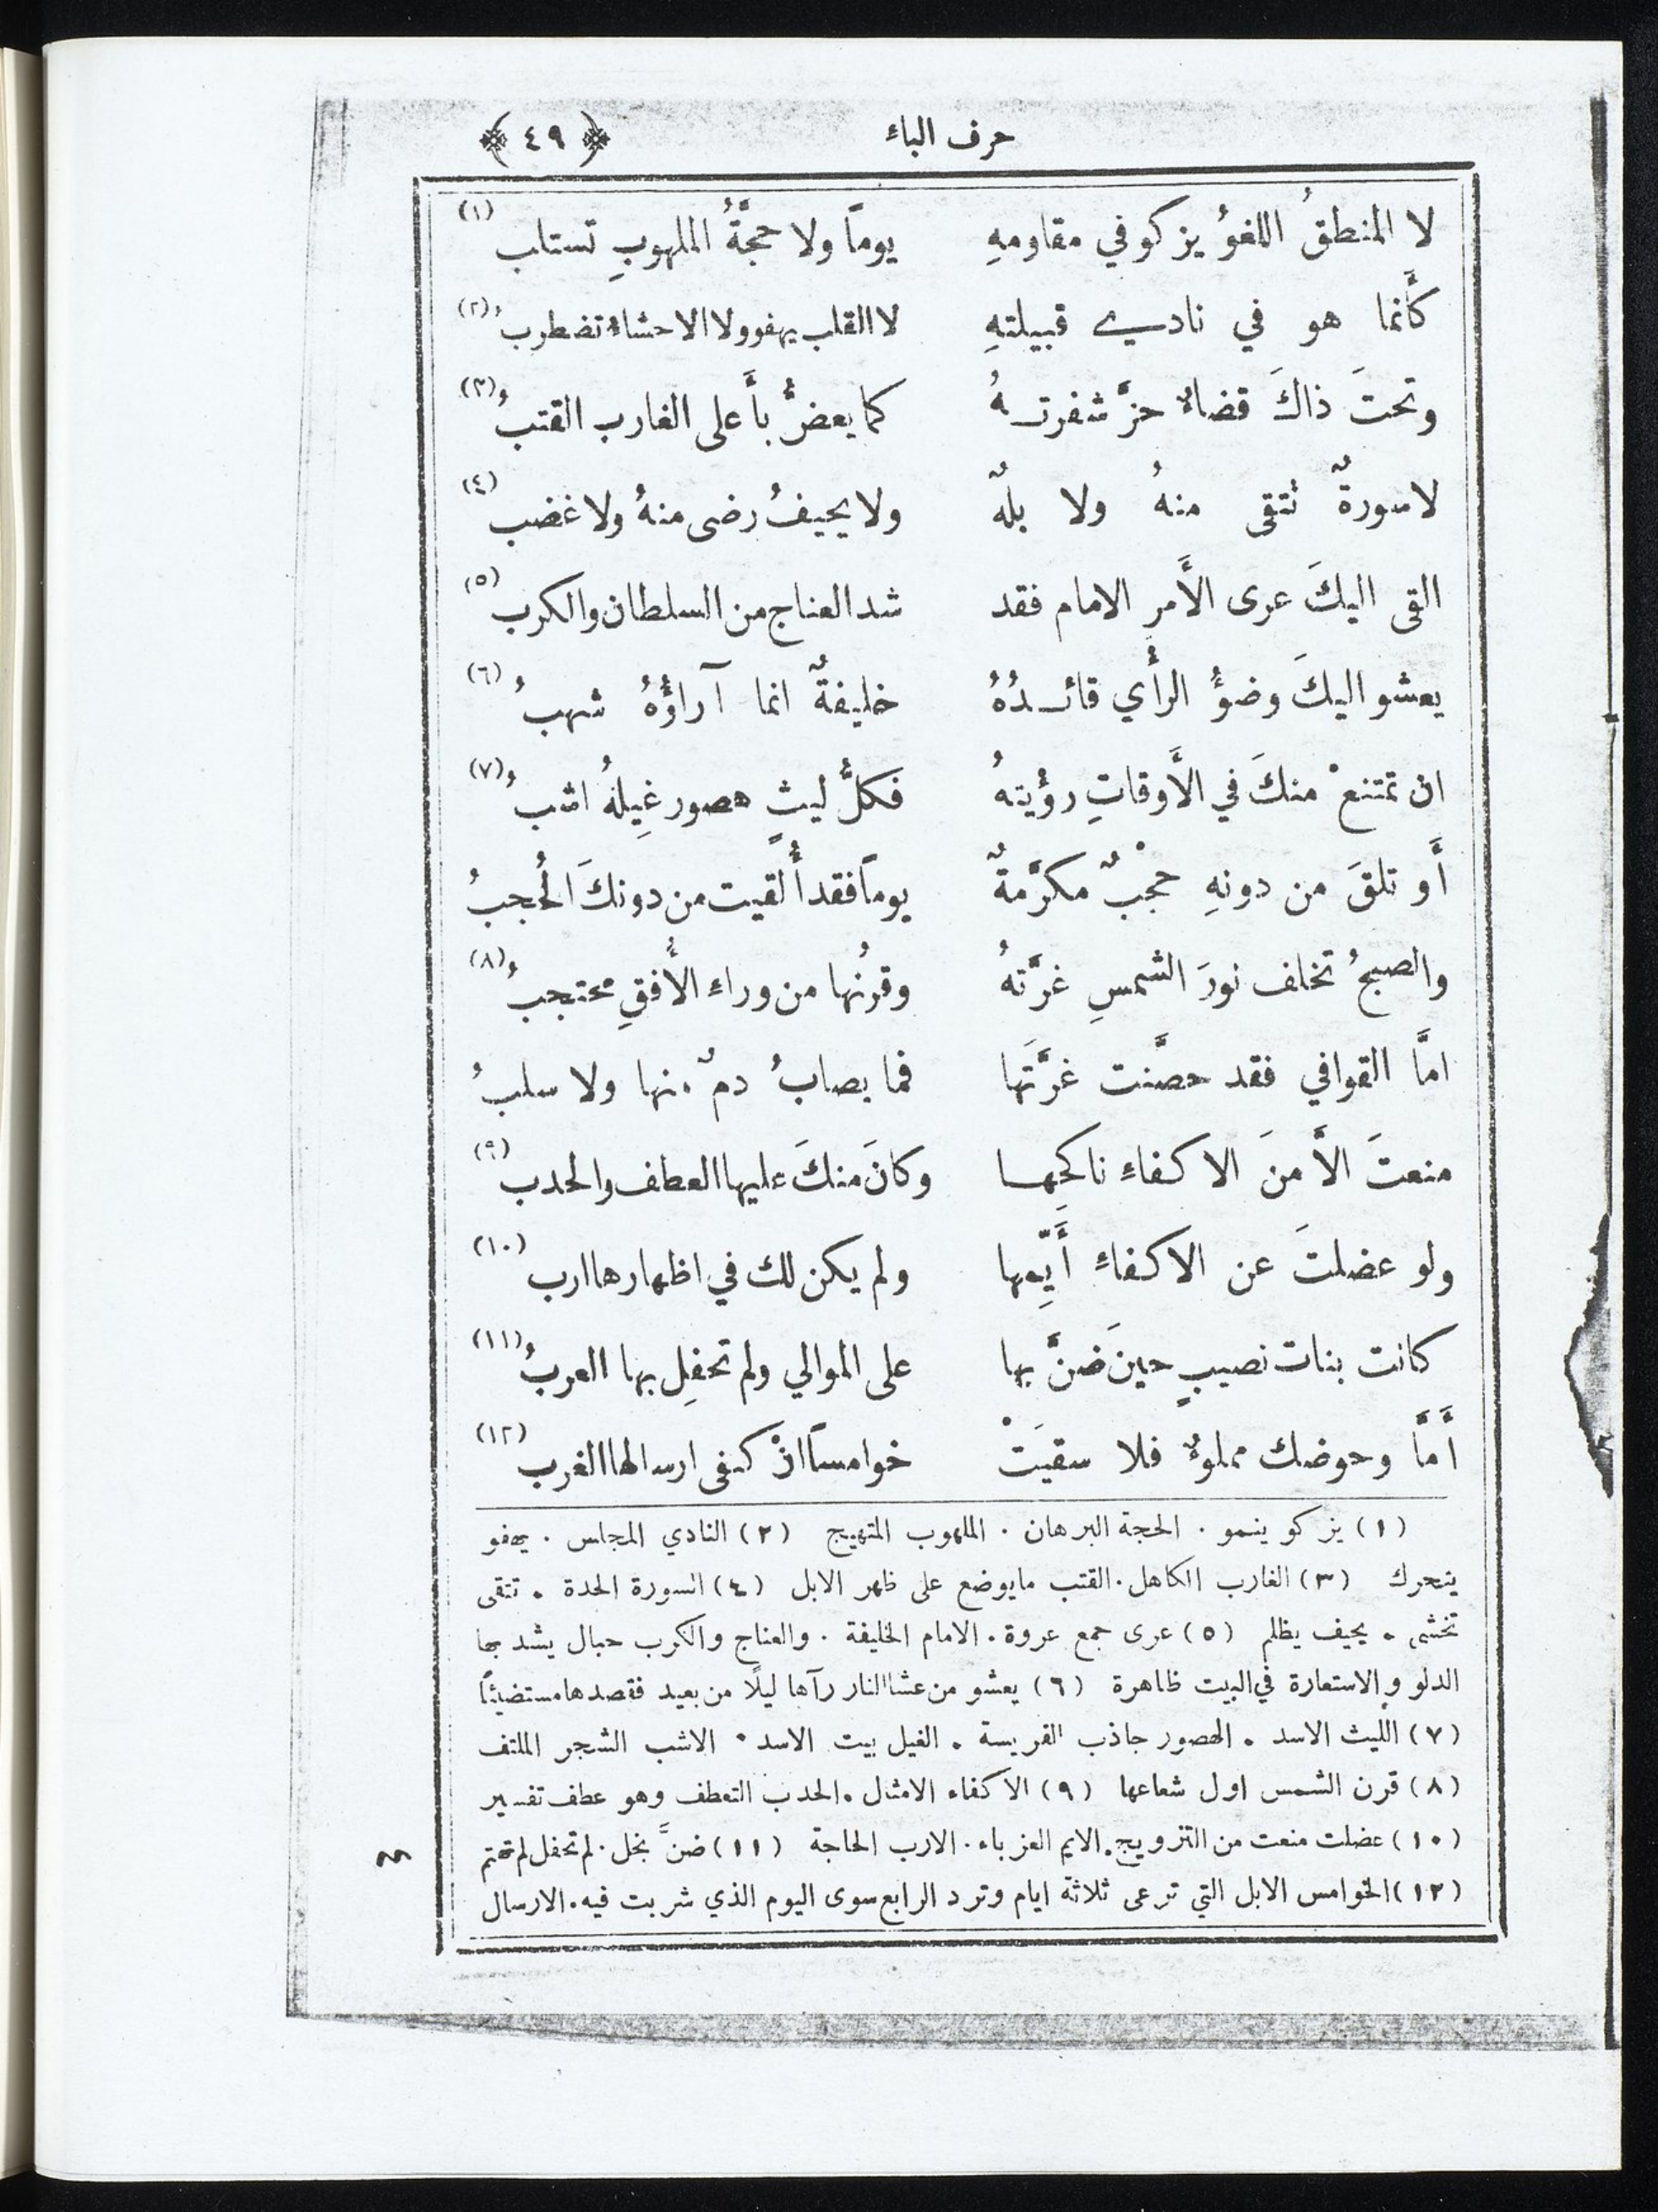 حرف الباء ﴿٤٩﴾
لا المنطقُ اللغوُ يزكو في مقاومهِ يوماً ولا حجَّةُ الملهوبِ تستلب (١)
كأَنما هو في نادي قبيلتهِ لا القلب يهفو ولا الاحشاءُ تضطربُ (٢)
وتحتَ ذاكَ قضاءٌ حزَّ شفرتهُ كما يعضُّ بأَعلى الغارب القتبُ (٣)
لا سورةٌ تتقى منهُ ولا بلهٌ ولا يحيفُ رضى منهُ ولا غضب (٤)
القى اليكَ عرى الأَمرِ الامام فقد شد العناج من السلطان والكرب (٥)
يعشو اليكَ وضوءُ الرأْي قائدُهُ خليفةٌ انما آراؤُهُ شهبُ (٦)
ان تمتنعْ منكَ في الأَوقاتِ رؤْيتهُ فكلُّ ليثٍ هصور غِيلهُ اشبُ (٧)
أَو تلقَ من دونهِ حجْبٌ مكرَّمةٌ يوماً فقد أُلقيت من دونكَ الحُجبُ
والصبحُ تخلف نورَ الشمسِ غرَّتهُ وقرنُها من وراءِ الأُفقِ محتجبُ (٨)
امَّا القوافي فقد حصَّنت غرَّتَها فما يصابُ دمٌ منها ولا سلبُ
منعتَ الاَّ منَ الاكفاءِ ناكحِها وكانَ منكَ عليها العطف والحدب (٩)
ولو عضلتَ عن الاكفاءِ أَيِّمها ولم يكن لك في اظهارها ارب (١٠)
كانت بنات نصيبٍ حينَ ضنَّ بها على الموالي ولم تحفِل بها العربُ (١١)
أَمَّا وحوضك مملوءٌ فلا سقيَتْ خوامساً انْ كفى ارسالها الغرب (١٢)
(١) يزكو ينمو . الحجة البرهان . الملهوب المتهيج (٢) النادي المجلس . يهفو
يتحرك (٣) الغارب الكاهل . القتب ما يوضع على ظهر الابل (٤) السورة الحدة . تتقى
تخشى . يحيف يظلم (٥) عرى جمع عروة . الامام الخليفة . والعناج والكرب حبال يشد بها
الدلو والاستعارة في البيت ظاهرة (٦) يعشو من عشا النار رآها ليلًا من بعيد فقصدها مستضيئًا
(٧) الليث الاسد . الهصور جاذب الفريسة . الغيل بيت الاسد . الاشب الشجر الملتف
(٨) قرن الشمس اول شعاعها (٩) الاكفاء الامثال . الحدب التعطف وهو عطف تفسير
(١٠) عضلت منعت من التزويج . الايم العزباء . الارب الحاجة (١١) ضنَّ بخل . لم تحفل لم تهتم
(١٢) الخوامس الابل التي ترعى ثلاثة ايام وترد الرابع سوى اليوم الذي شربت فيه . الارسال